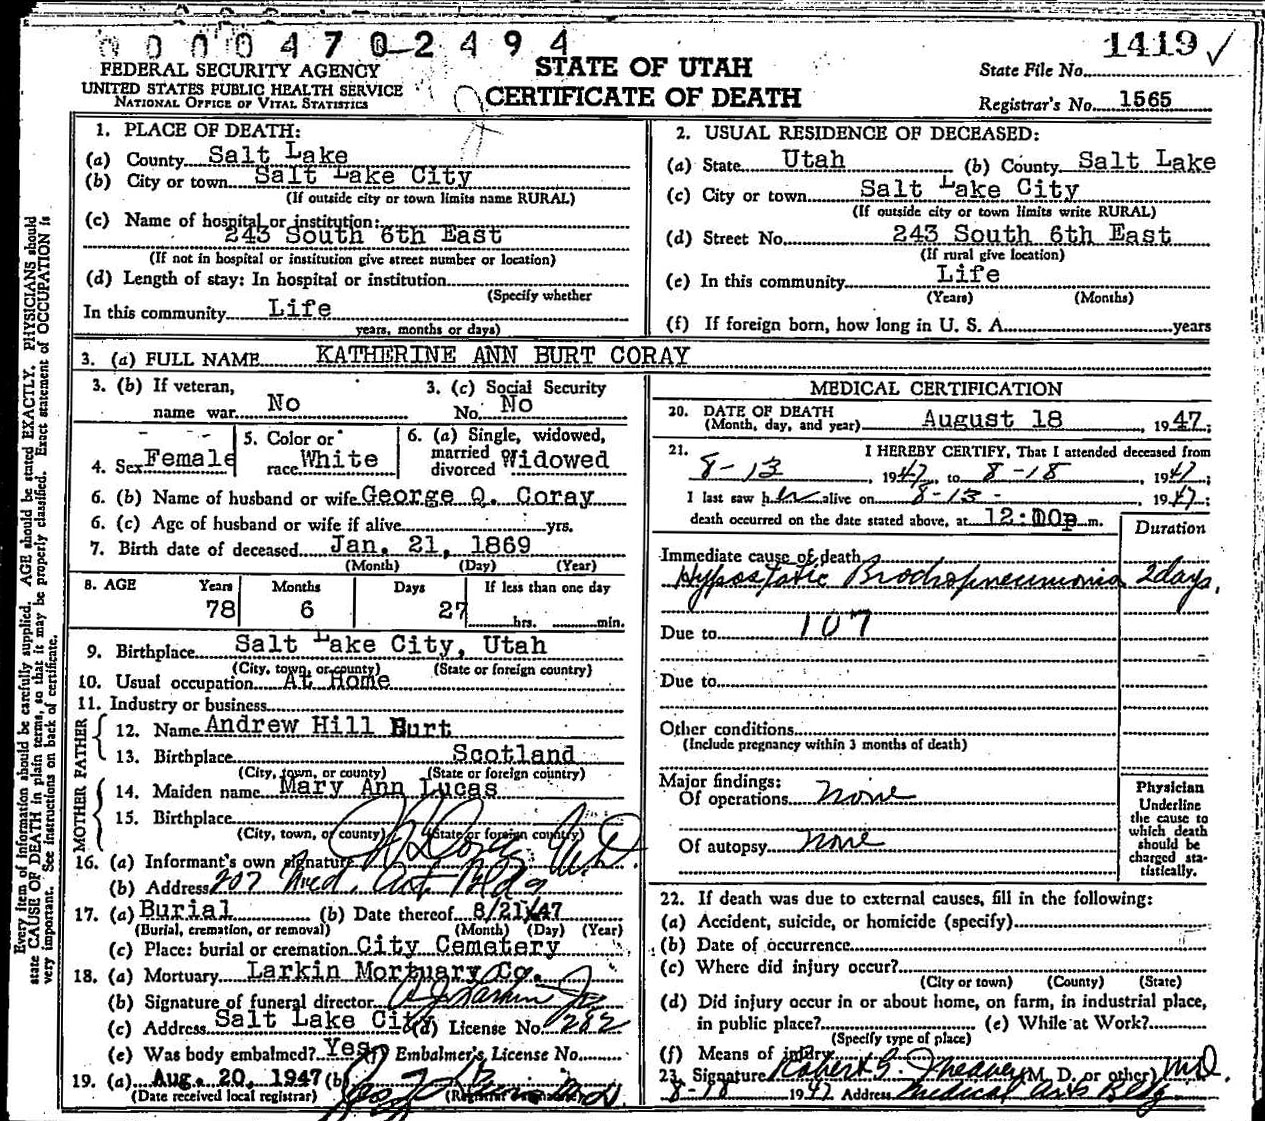 0 0 0 0 4 7 0 2 4 9 4
1419 ✓
FEDERAL SECURITY AGENCY
UNITED STATES PUBLIC HEALTH SERVICE
NATIONAL OFFICE OF VITAL STATISTICS
STATE OF UTAH
CERTIFICATE OF DEATH
State File No.
Registrar's No. 1565
1. PLACE OF DEATH:
(a) County Salt Lake
(b) City or town Salt Lake City
(If outside city or town limits name RURAL)
(c) Name of hospital or institution:
243 South 6th East
(If not in hospital or institution give street number or location)
(d) Length of stay: In hospital or institution
(Specify whether
In this community Life
years, months or days)
2. USUAL RESIDENCE OF DECEASED:
(a) State Utah (b) County Salt Lake
(c) City or town Salt Lake City
(If outside city or town limits write RURAL)
(d) Street No. 243 South 6th East
(If rural give location)
(e) In this community Life
(Years) (Months)
(f) If foreign born, how long in U. S. A. years
3. (a) FULL NAME KATHERINE ANN BURT CORAY
3. (b) If veteran,
name war No
3. (c) Social Security
No. No
4. Sex Female
5. Color or
race White
6. (a) Single, widowed,
married
divorced Widowed
6. (b) Name of husband or wife George Q. Coray
6. (c) Age of husband or wife if alive yrs.
7. Birth date of deceased Jan. 21, 1869
(Month) (Day) (Year)
8. AGE Years Months Days If less than one day
78 6 27 hrs. min.
9. Birthplace Salt Lake City, Utah
(City, town, or county) (State or foreign country)
10. Usual occupation At Home
11. Industry or business
FATHER
12. Name Andrew Hill Burt
13. Birthplace Scotland
(City, town, or county) (State or foreign country)
MOTHER
14. Maiden name Mary Ann Lucas
15. Birthplace
(City, town, or county) (State or foreign country)
16. (a) Informant's own signature M.D.
(b) Address 207 Med. Art Bldg
17. (a) Burial (b) Date thereof 8/21/47
(Burial, cremation, or removal) (Month) (Day) (Year)
(c) Place: burial or cremation City Cemetery
18. (a) Mortuary Larkin Mortuary Co.
(b) Signature of funeral director
(c) Address Salt Lake City (d) License No. 282
(e) Was body embalmed? Yes (f) Embalmer's License No.
19. (a) Aug. 20, 1947 (b)
(Date received local registrar)
MEDICAL CERTIFICATION
20. DATE OF DEATH
(Month, day, and year) August 18, 1947;
21. I HEREBY CERTIFY, That I attended deceased from
8-13, 1947, to 8-18, 1947;
I last saw her alive on 8-13-, 1947;
death occurred on the date stated above, at 12:10p m.
Duration
Immediate cause of death
Hypostatic Bronchopneumonia 2 days,
Due to 107
Due to
Other conditions
(Include pregnancy within 3 months of death)
Major findings:
Of operations none
Of autopsy none
Physician
Underline
the cause to
which death
should be
charged sta-
tistically.
22. If death was due to external causes, fill in the following:
(a) Accident, suicide, or homicide (specify)
(b) Date of occurrence
(c) Where did injury occur?
(City or town) (County) (State)
(d) Did injury occur in or about home, on farm, in industrial place,
in public place? (e) While at Work?
(Specify type of place)
(f) Means of injury
23. Signature Robert G. (M. D. or other) M.D.
8-18 1947 Address Medical Arts Bldg
Every item of information should be carefully supplied. AGE should be stated EXACTLY. PHYSICIANS should
state CAUSE OF DEATH in plain terms, so that it may be properly classified. Exact statement of OCCUPATION is
very important. See instructions on back of certificate.